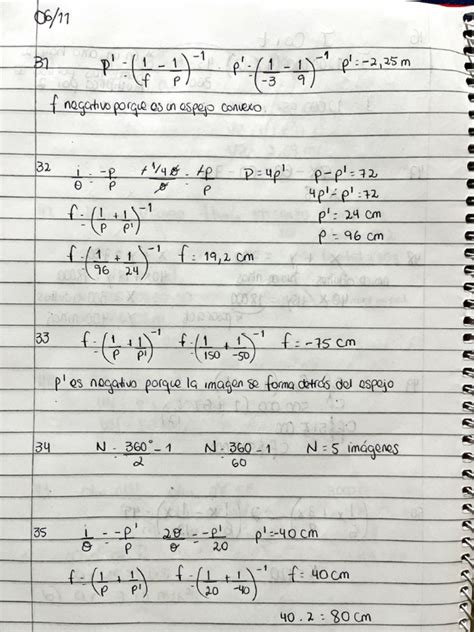 06/11
31 p' = (1/f - 1/p)^-1 p' = (1/-3 - 1/9)^-1 p' = -2,25 m
f negativo porque es un espejo convexo
32 i/θ = -p/p +1/4θ/θ = +p/p p = 4p' p - p' = 72
4p' - p' = 72
f = (1/p + 1/p')^-1 p' = 24 cm
p = 96 cm
f = (1/96 + 1/24)^-1 f = 19,2 cm
33 f = (1/p + 1/p')^-1 f = (1/150 + 1/-50)^-1 f = -75 cm
p' es negativo porque la imagen se forma detrás del espejo
34 N = 360°/2 - 1 N = 360/60 - 1 N = 5 imágenes
35 i/θ = -p'/p 2θ/θ = -p'/20 p' = -40 cm
f = (1/p + 1/p') f = (1/20 + 1/-40)^-1 f = 40 cm
40 . 2 = 80 cm